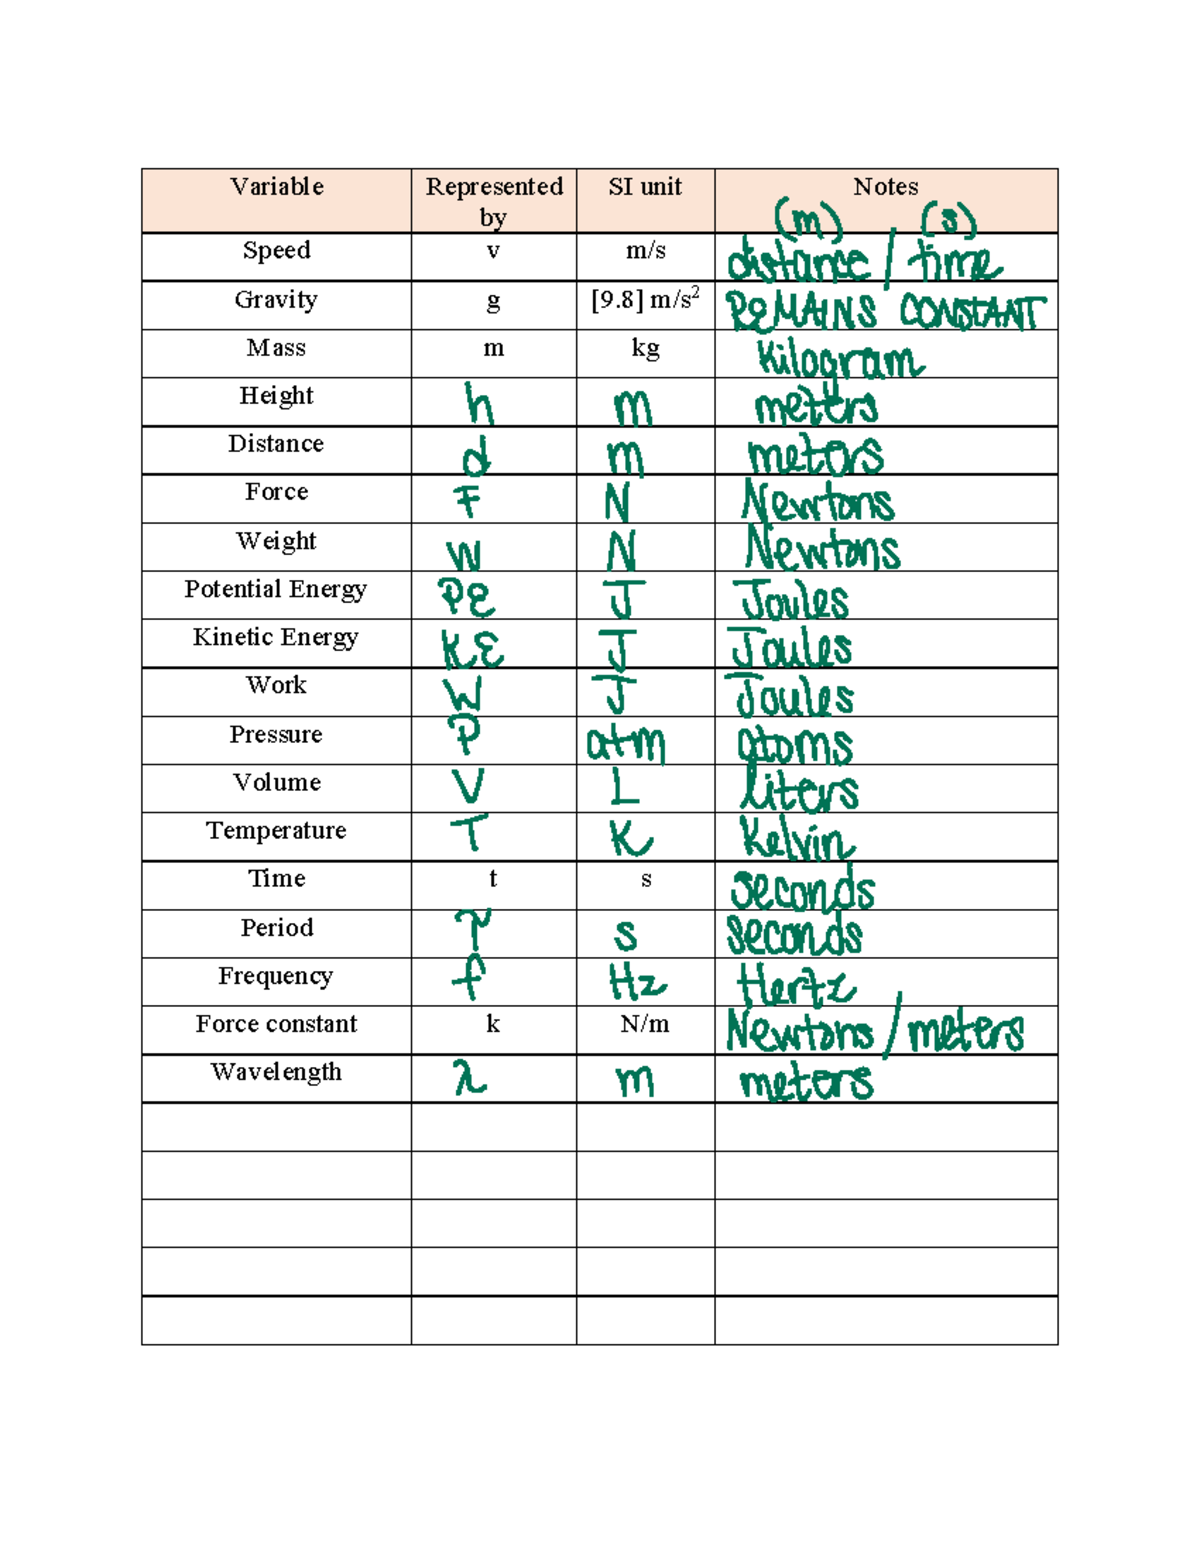 Variable Represented by SI unit Notes
(m) (s)
Speed v m/s distance / time
Gravity g [9.8] m/s² REMAINS CONSTANT
Mass m kg Kilogram
Height h m meters
Distance d m meters
Force F N Newtons
Weight W N Newtons
Potential Energy PE J Joules
Kinetic Energy KE J Joules
Work W J Joules
Pressure P atm atoms
Volume V L liters
Temperature T K Kelvin
Time t s seconds
Period T s seconds
Frequency f Hz Hertz
Force constant k N/m Newtons / meters
Wavelength λ m meters